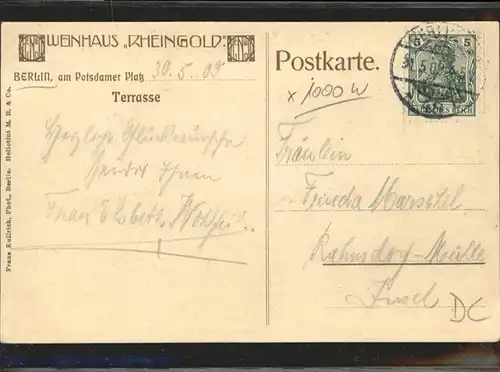 WEINHAUS „RHEINGOLD"
BERLIN, am Potsdamer Platz
30.5.09
Terrasse
Herzliche Glückwünsche
sendet Ihnen
Frau Elsbeth
Franz Kullrich, Phot., Berlin. Heliotint M. R. & Co.
Postkarte.
x 1000 W
5 5
Fräulein
Frieda
Rahnsdorf-Mühle
Insel
DC